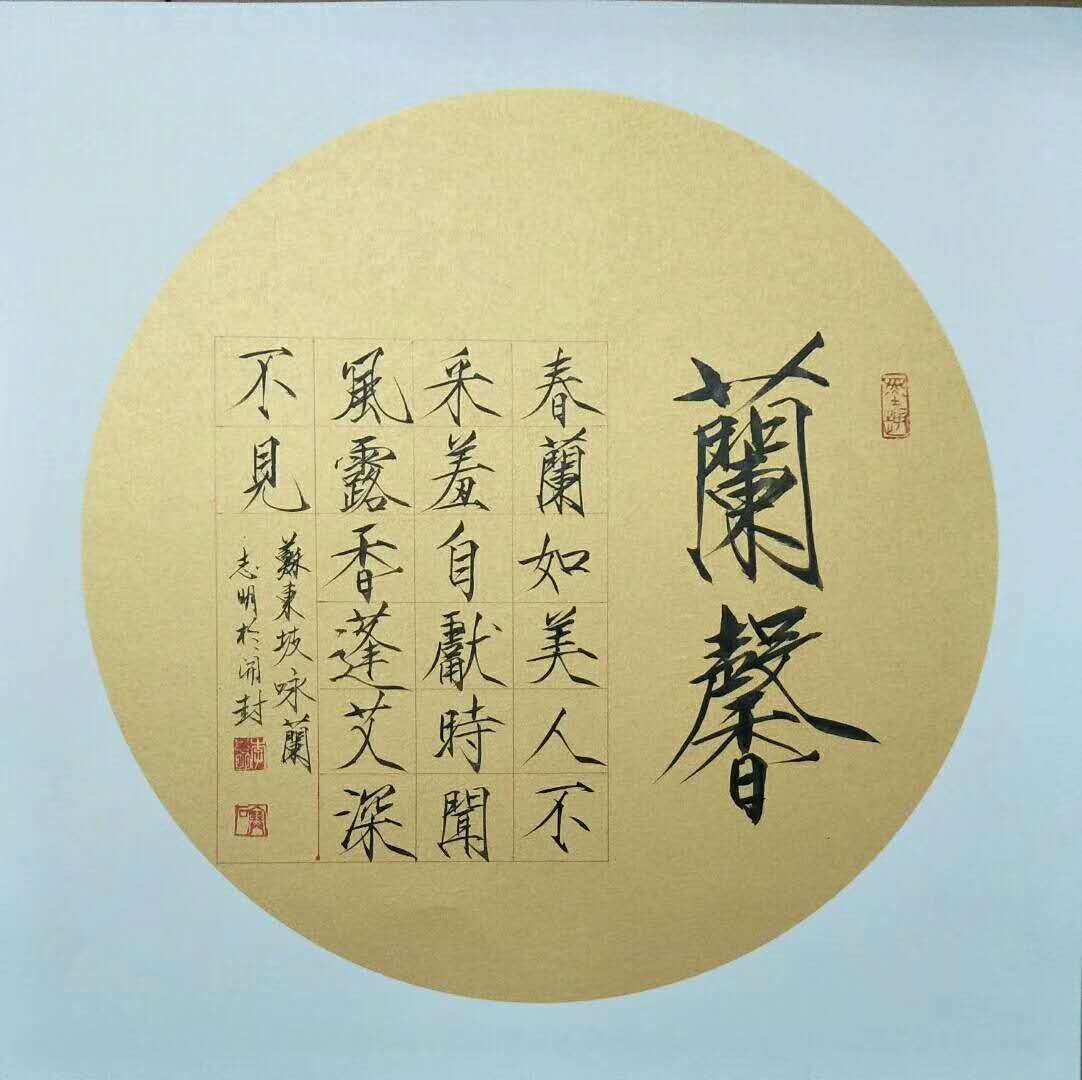 蘭馨
春蘭如美人不
采羞自獻時聞
風露香蓬艾深
不見
蘇東坡咏蘭
志明於開封